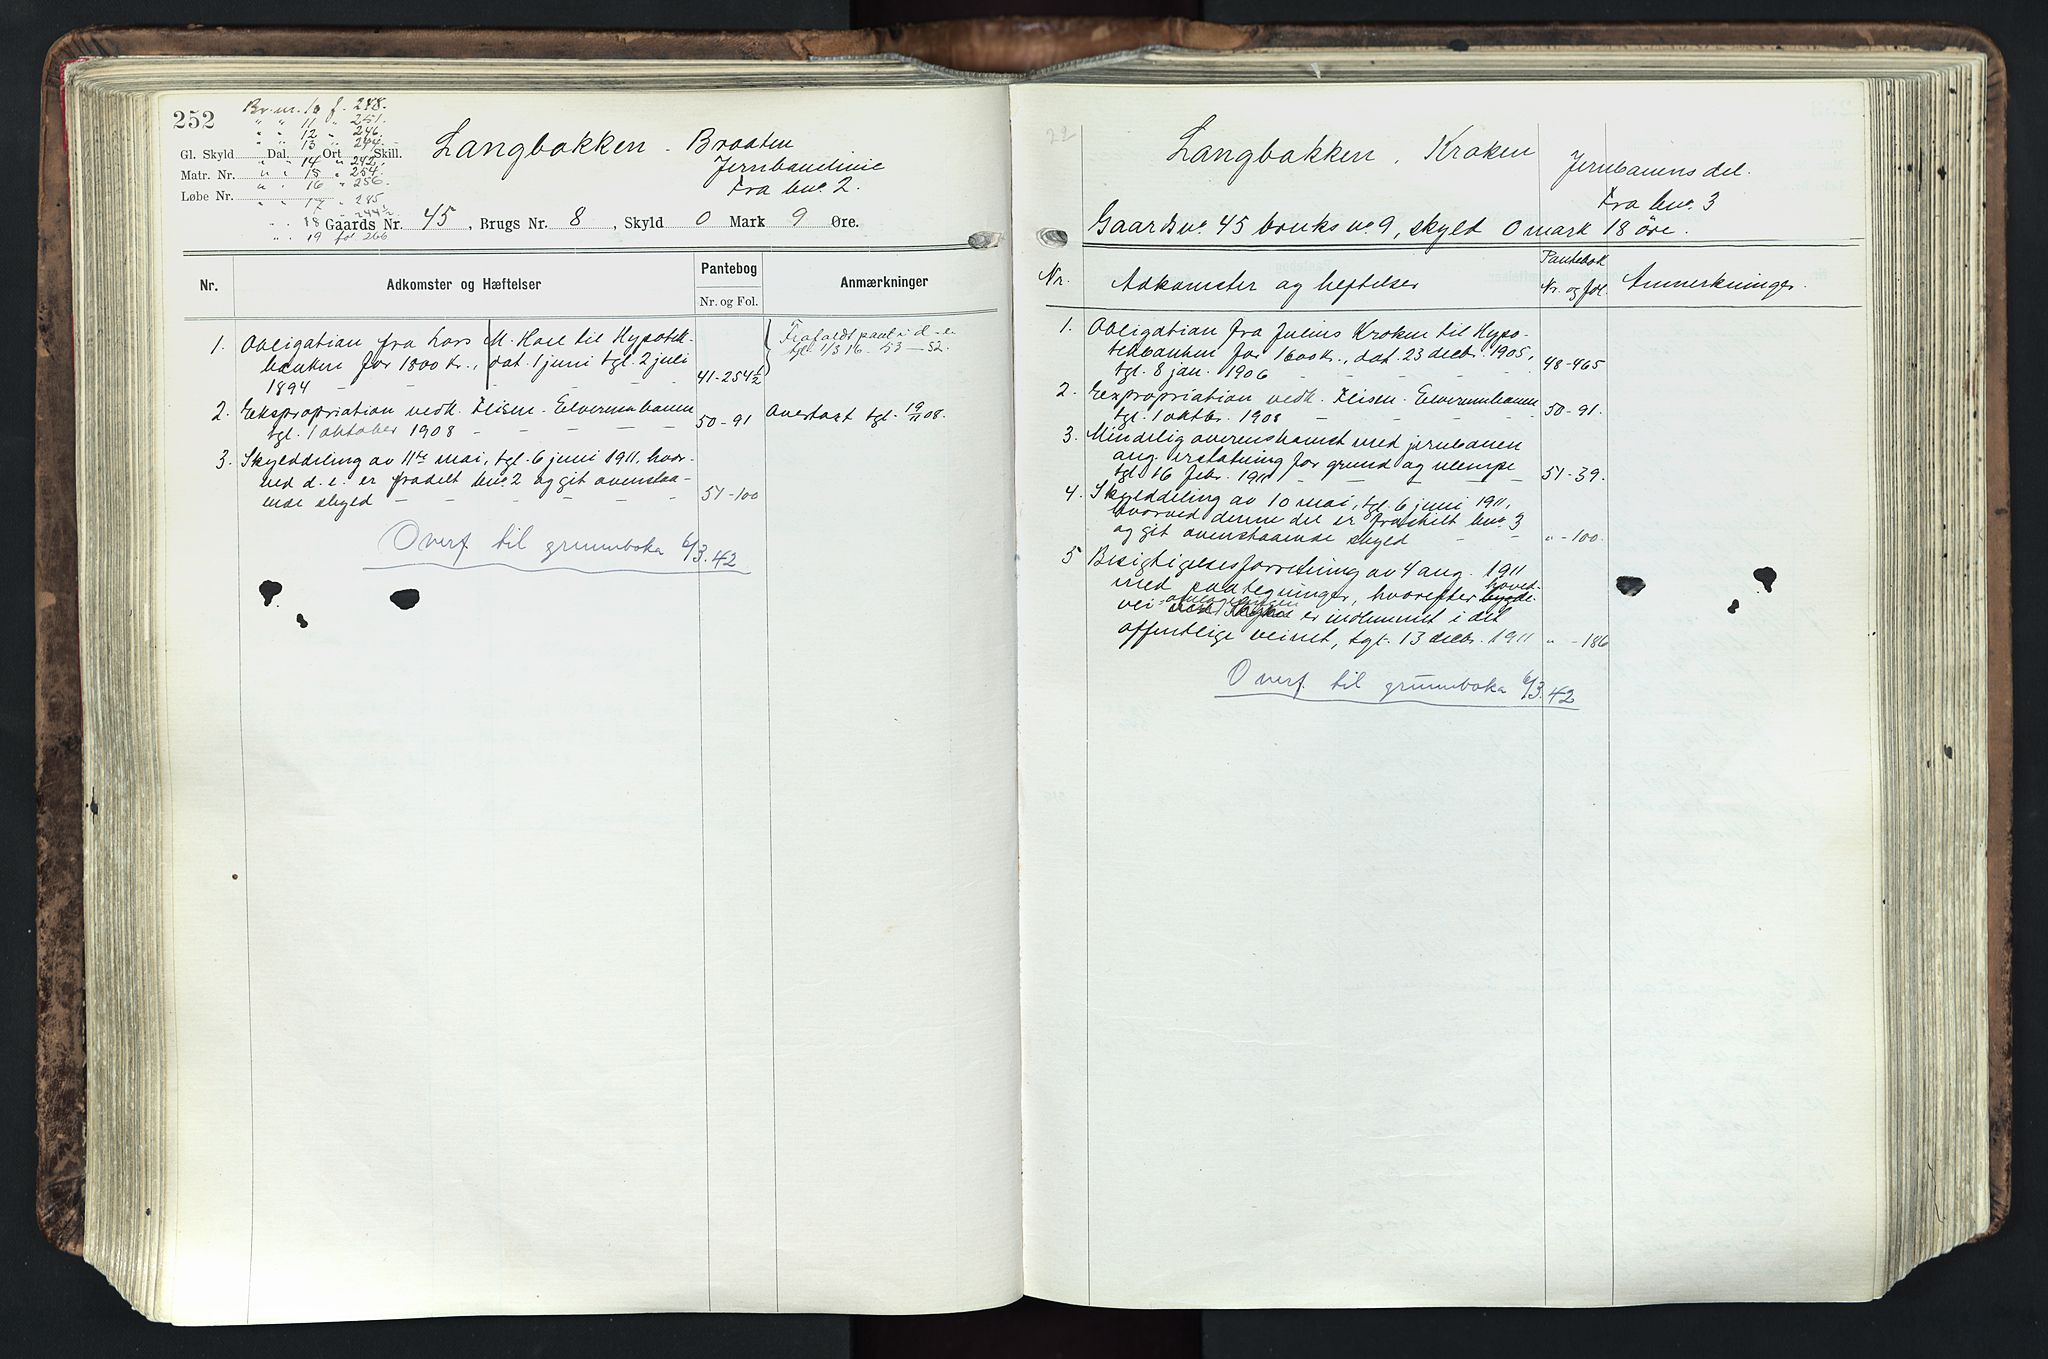 252
Br. nr. 10 f. 248.
" " 11 " 251.
" " 12 " 246.
" " 13 " 244.
Gl. Skyld Dal. Ort Skill.
" " 14 " 242.
Matr. Nr. " " 15 " 254.
" " 16 " 256.
Løbe Nr. " " 17 " 285
" " 18 " 244½.
" " 19 fol. 266
Langbakken. Braaten
Jernbanelinie
Fra bno. 2.
Gaards Nr. 45, Brugs Nr. 8, Skyld 0 Mark 9 Øre.
Nr. Adkomster og Hæftelser Pantebog Nr. og Fol. Anmærkninger
1. Obligation fra Lars M. Hoel til Hypotek-
banken for 1800 kr., dat. 1 juni tgl. 2 juli
1894 - - - - - 41-254½
Frafaldt pant i d. e.
tgl. 1/3 16. 53-52.
2. Ekspropriation vedk. Flisen-Elverumbanen
tgl. 1 oktober 1908 - - - - 50-91 Avertert tgl. 19/11 08.
3. Skylddeling av 11te mai, tgl. 6 juni 1911, hvor-
ved d. e. er fradelt bno. 2 og git ovenstaa-
ende skyld - - - - 51-100
Overf. til grunnboka 6/3.42
22
Langbakken, Kroken
Jernbanens del.
Fra bno. 3
Gaardsno. 45 bruks no 9, skyld 0 mark 18 öre.
Nr. Adkomster og heftelser Pantebok Nr. og fol. Anmerkninger.
1. Obligation fra Julius Kroken til Hypo-
tekbanken for 1600 kr., dat. 23 decbr. 1905,
tgl. 8 jan. 1906 - - - - 48-465
2. Expropriation vedk. Flisen-Elverumbanen
tgl. 1 oktbr. 1908 - - - - 50-91.
3. Mindelig overenskomst med jernbanen
ang. erstatning for grund og ulempe
tgl. 16 febr. 1911 - - - 51-39.
4. Skylddeling av 10 mai, tgl. 6 juni 1911,
hvorved denne del er fraskilt bno. 3
og git ovenstaaende skyld - - " -100.
5 Besigtigelsesforretning av 4 aug. 1911
med paategninger, hvorefter bygde- hoved-
vei er indlemmet i det
offentlige veinet, tgl. 13 decbr. 1911 " -186
Overf. til grunnboka 6/3.42